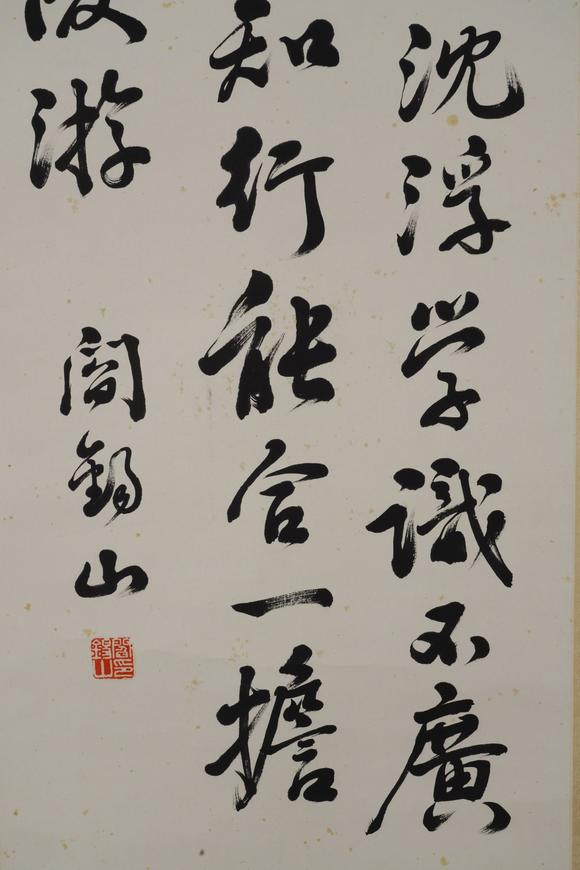 沈浮学識不廣
知行能合一擔
游
閻錫山
閻錫山印